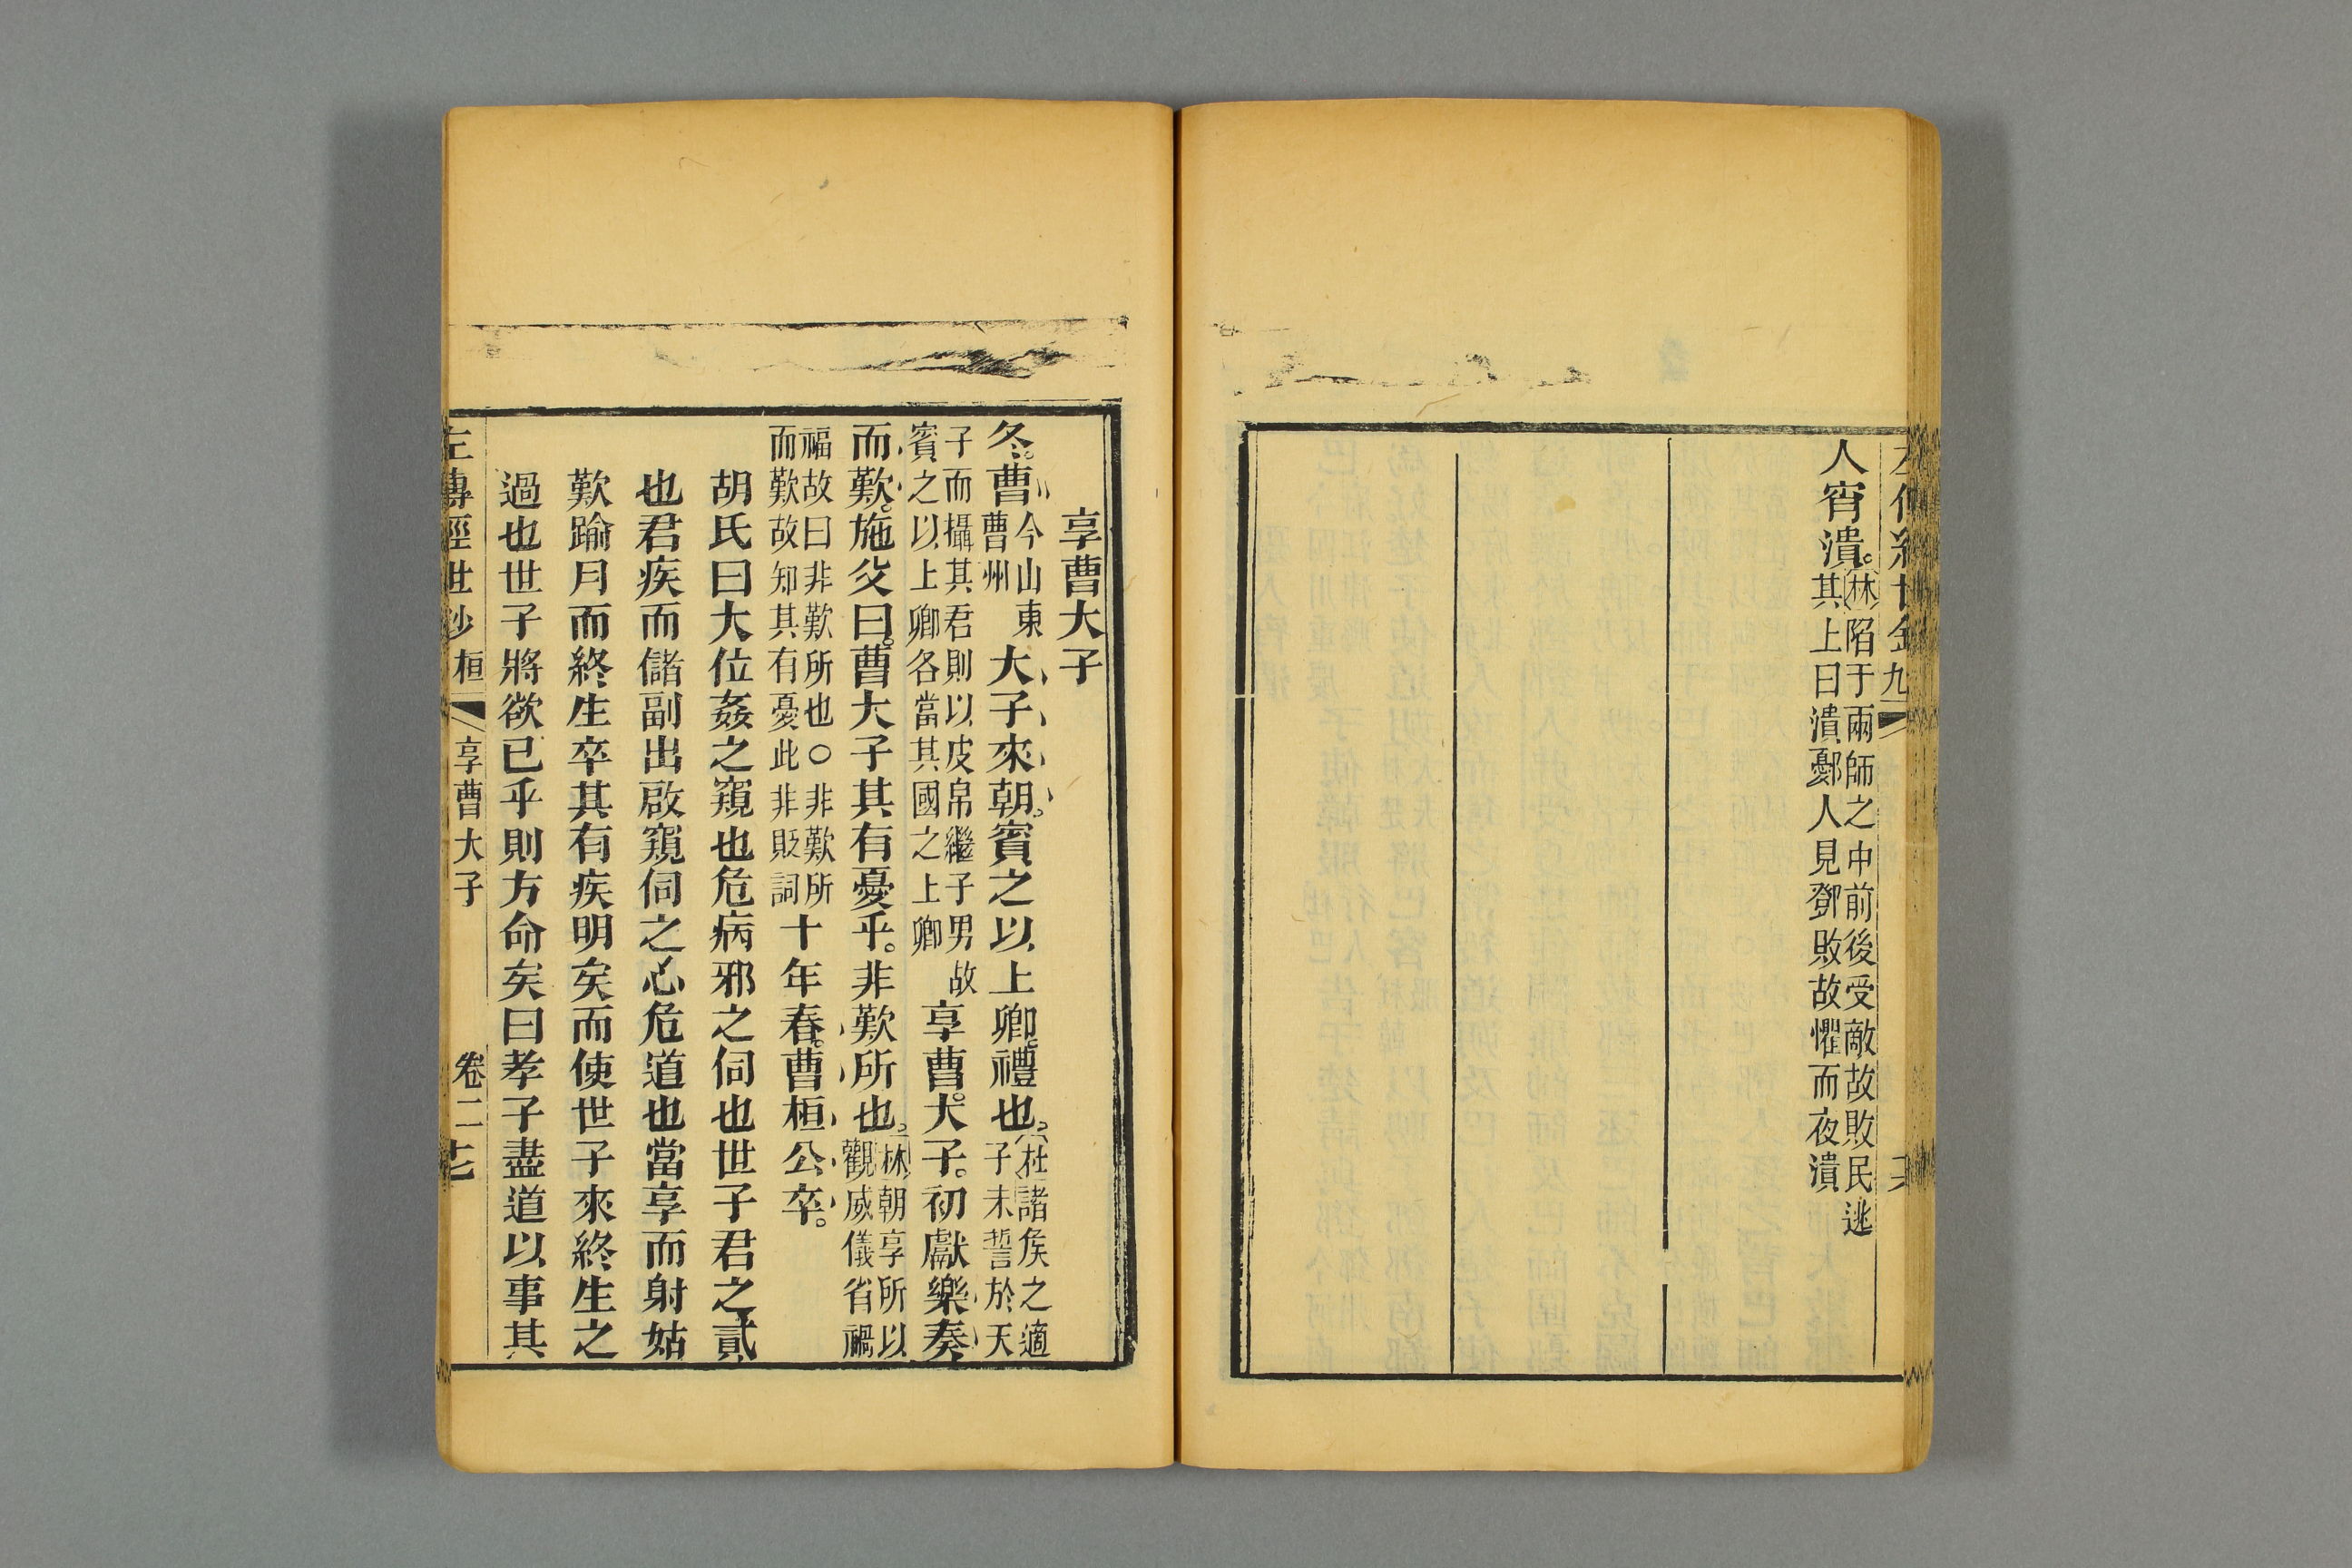 人宵潰。㊍陷于兩師之中前後受敵故敗民逃
其上曰潰鄾人見鄧敗故懼而夜潰
享曹大子
冬。曹今山東
曹州大子來朝。賓之以上卿。禮也。杜諸侯之適
子未誓於天
子而攝其君則以皮帛繼子男故
賓之以上卿各當其國之上卿享曹大子。初獻樂奏
而歎。施父曰。曹大子其有憂乎。非歎所也。林朝享所以
觀威儀省禍
福故曰非歎所也○非歎所
而歎故知其有憂此非貶詞十年春。曹桓公卒。
胡氏曰大位姦之窺也危病邪之伺也世子君之貳
也君疾而儲副出啟窺伺之心危道也當享而射姑
歎踰月而終生卒其有疾明矣而使世子來終生之
過也世子將欲已乎則方命矣曰孝子盡道以事其
左傳經世鈔 桓 享曹大子 卷二 七